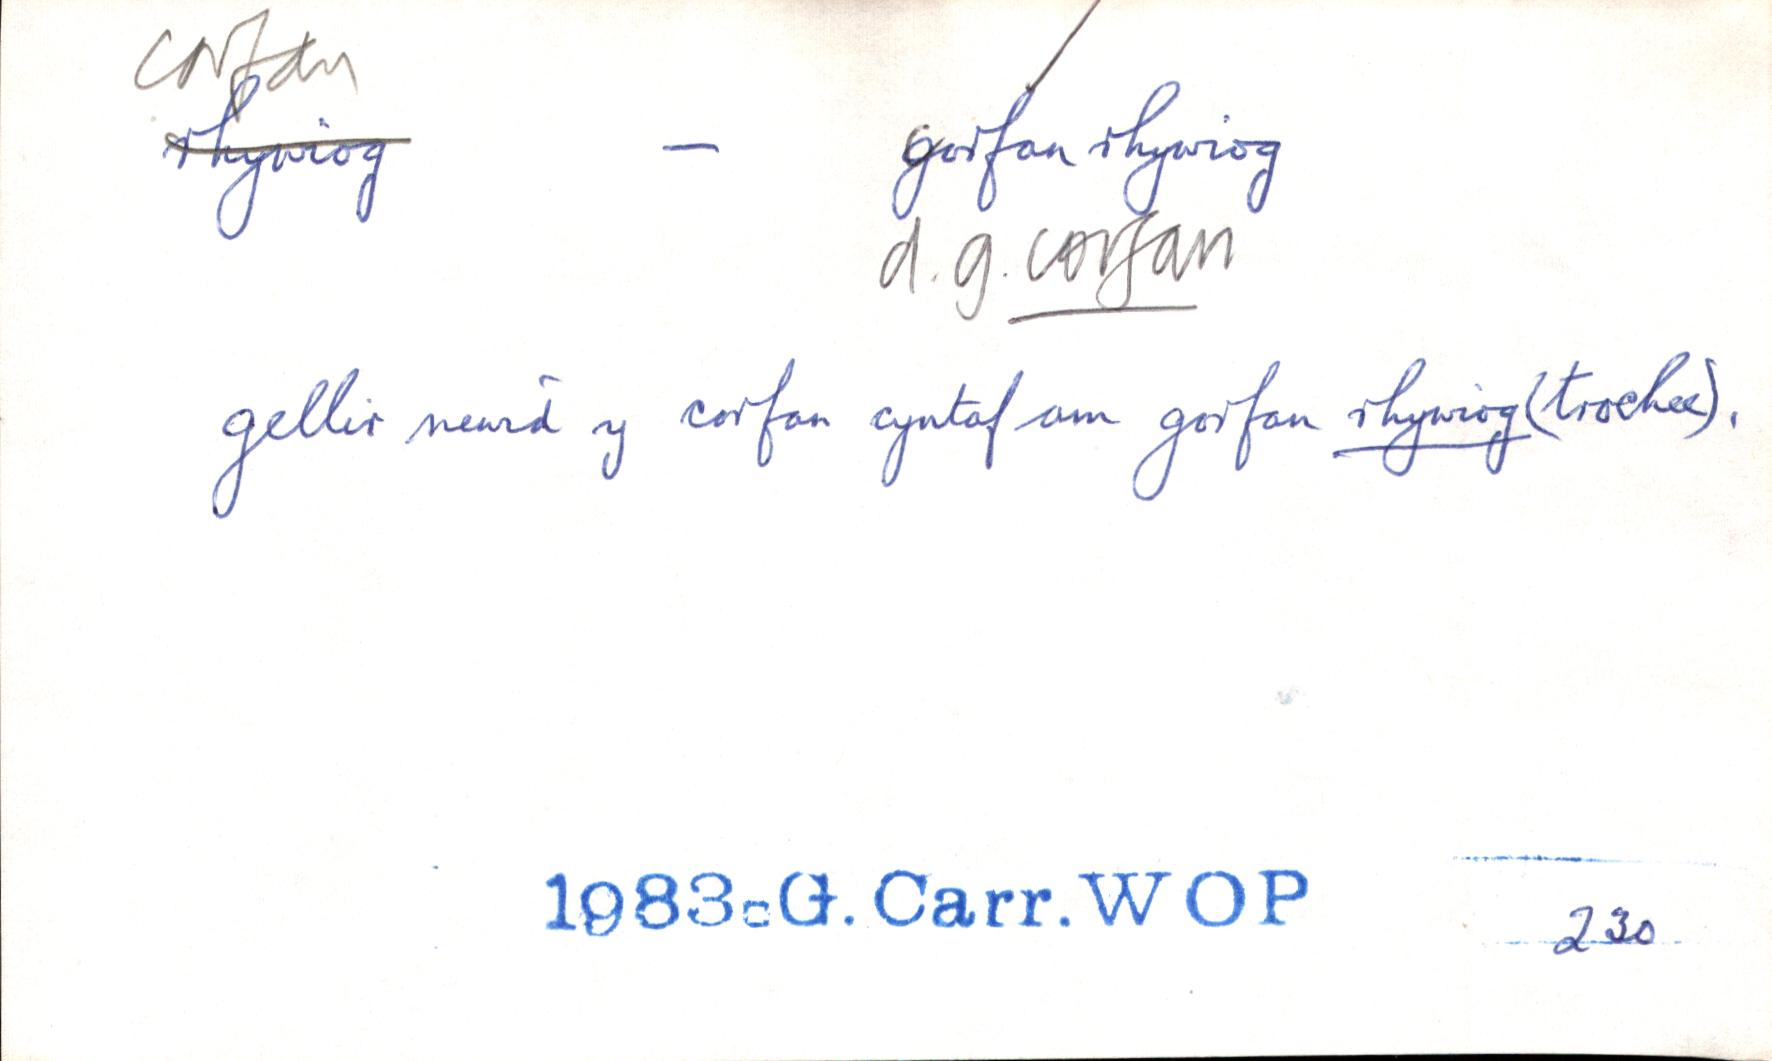 corfan
rhywiog — gorfan rhywiog
d.g. corfan
gellir newid y corfan cyntaf am gorfan rhywiog (trochee).
1983c G. Carr. WOP
230